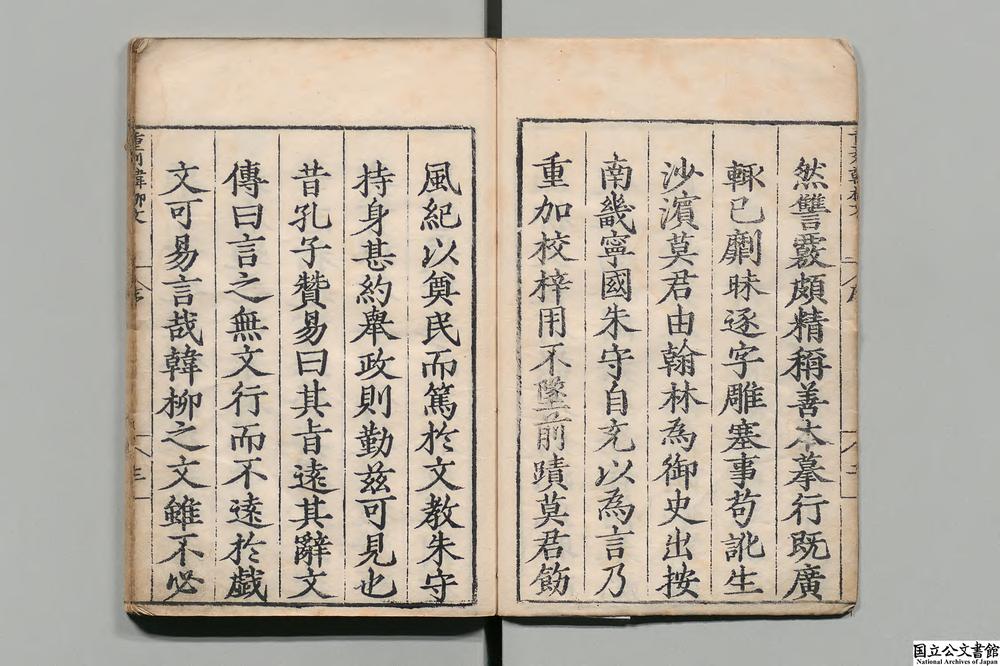 然讐覈頗精稱善本摹行既廣
輙已劘昧逐字雕塞事苟訛生
沙濵莫君由翰林為御史出按
南畿寧國朱守自充以為言乃
重加校梓用不墜前蹟莫君飭
風紀以奠民而篤於文教朱守
持身甚約舉政則勤兹可見也
昔孔子贊易曰其旨遠其辭文
傳曰言之無文行而不遠於戯
文可易言哉韓柳之文雖不必
重刻韓柳文
序
三
国立公文書館
National Archives of Japan